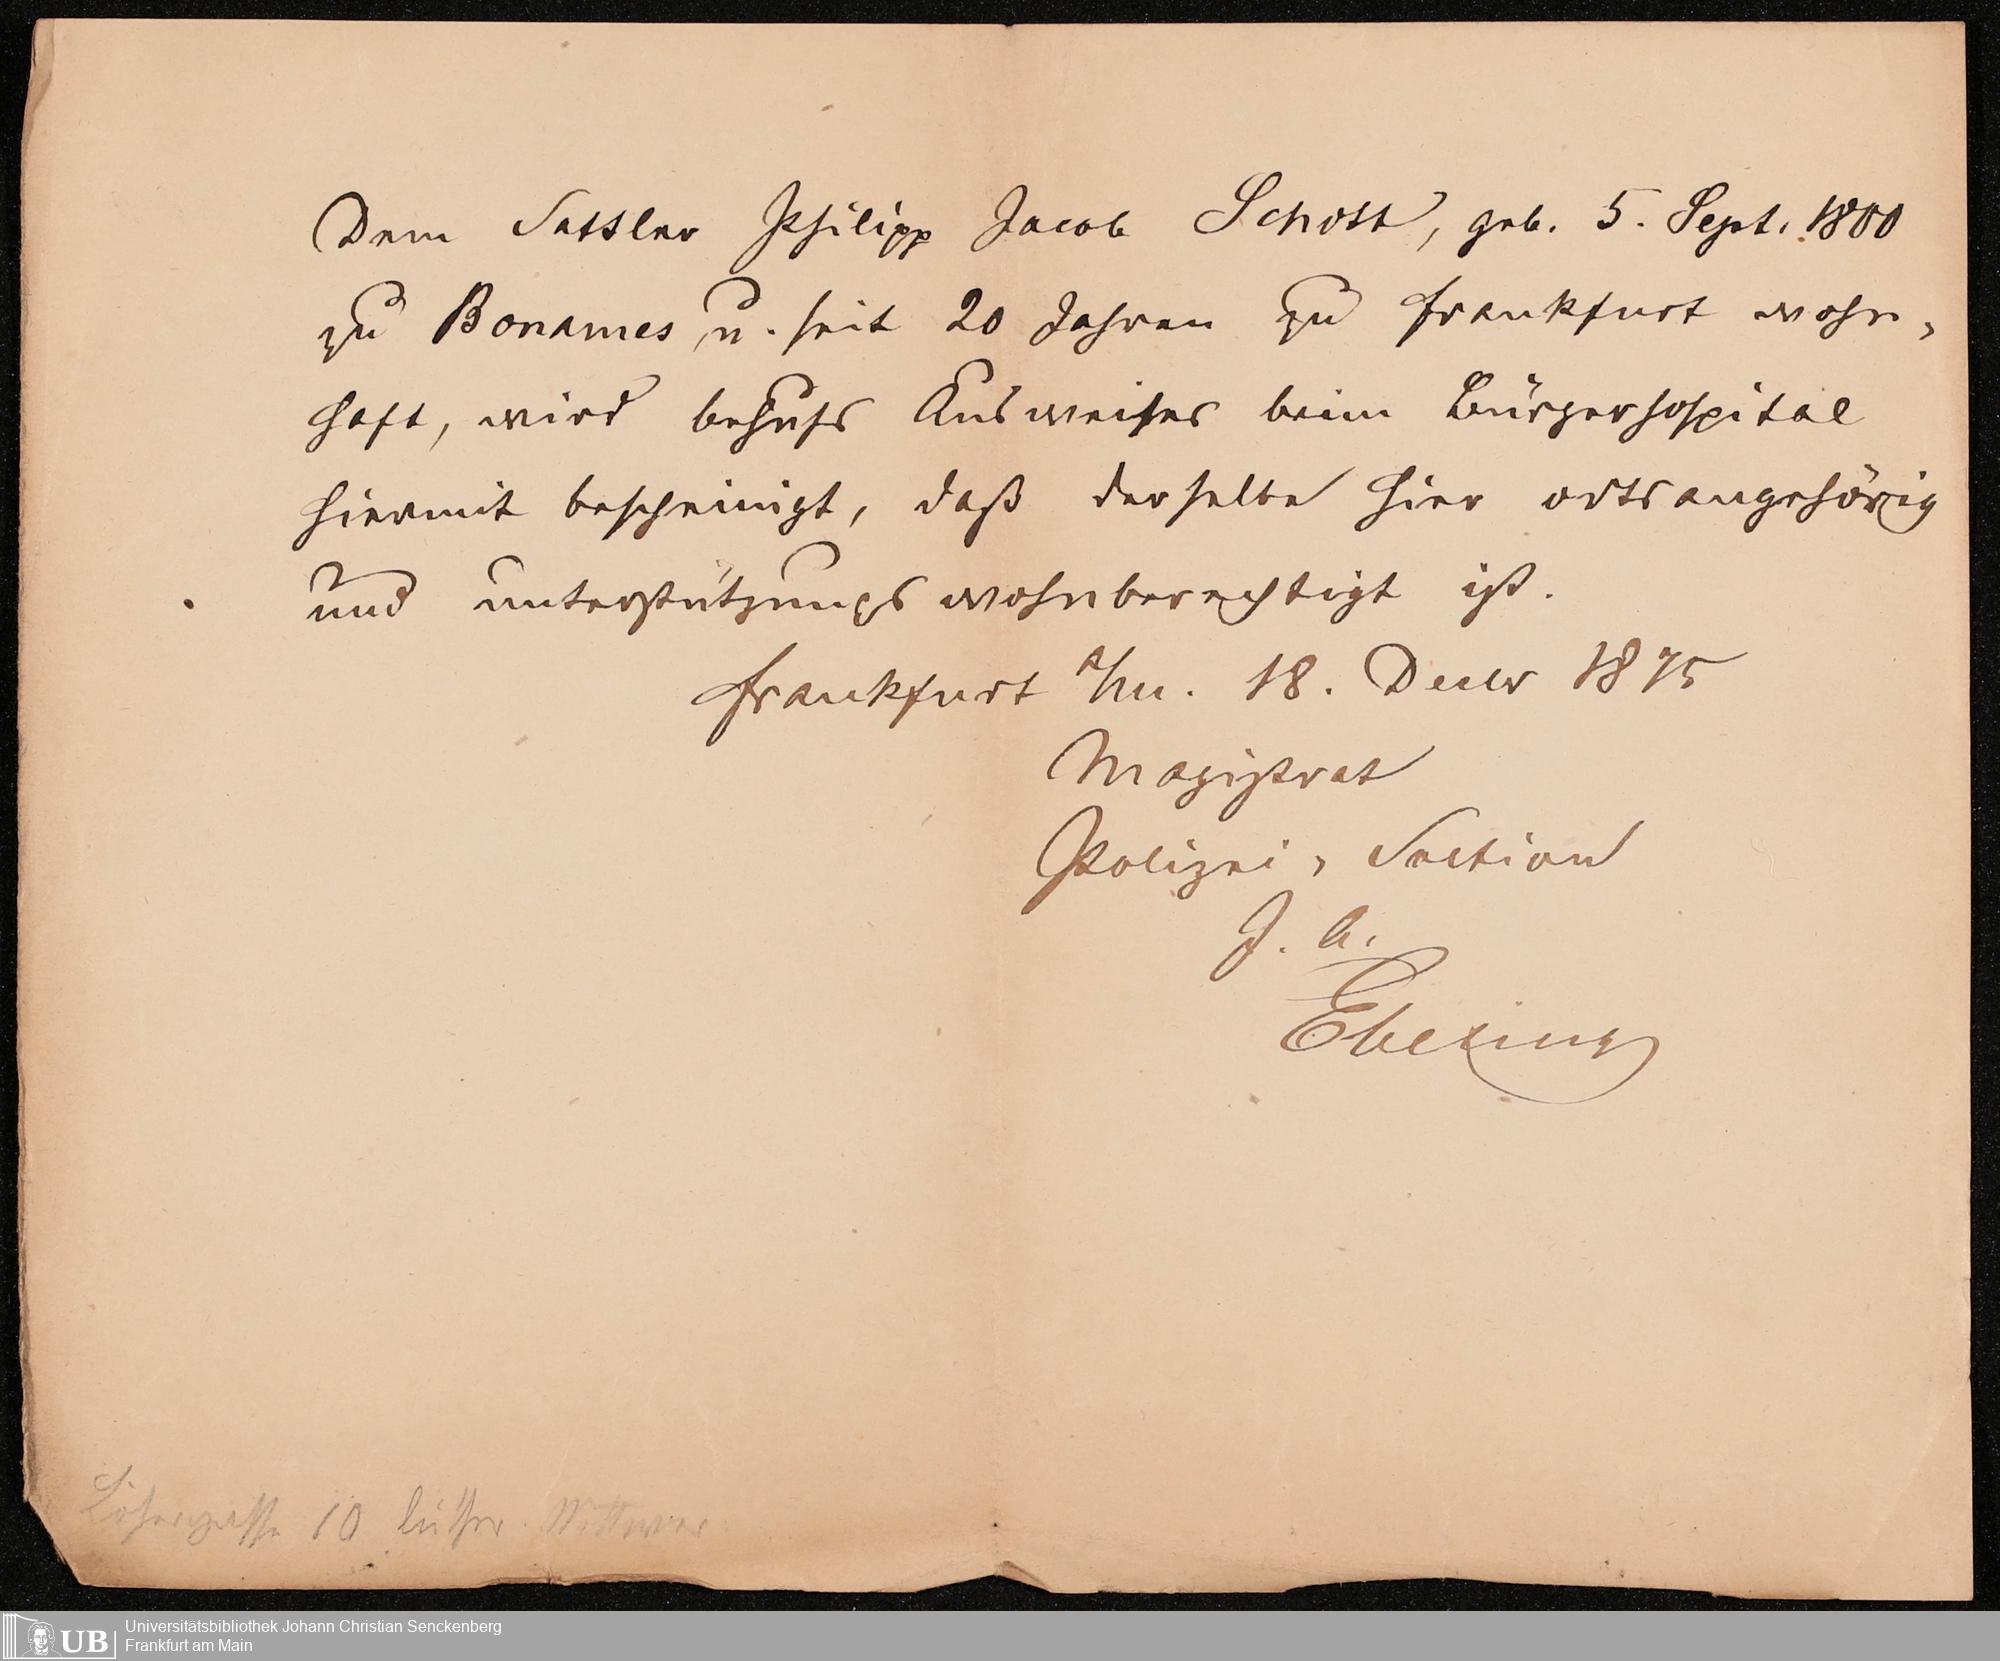 Dem Sattler Philipp Jacob Schott, geb. 5. Sept. 1800
zu Bonames, u. seit 20 Jahren zu Frankfurt wohn-
haft, wird behufs Ausweises beim Bürgerhospital
hiermit bescheinigt, daß derselbe hier ortsangehörig
und unterstützungswohnberechtigt ist.
Frankfurt a/m. 18. Decbr 1875
Magistrat
Polizei-Section
J. A.
Ebeling
Löhergasse 10 luther. Wittwer
UB
Universitätsbibliothek Johann Christian Senckenberg
Frankfurt am Main